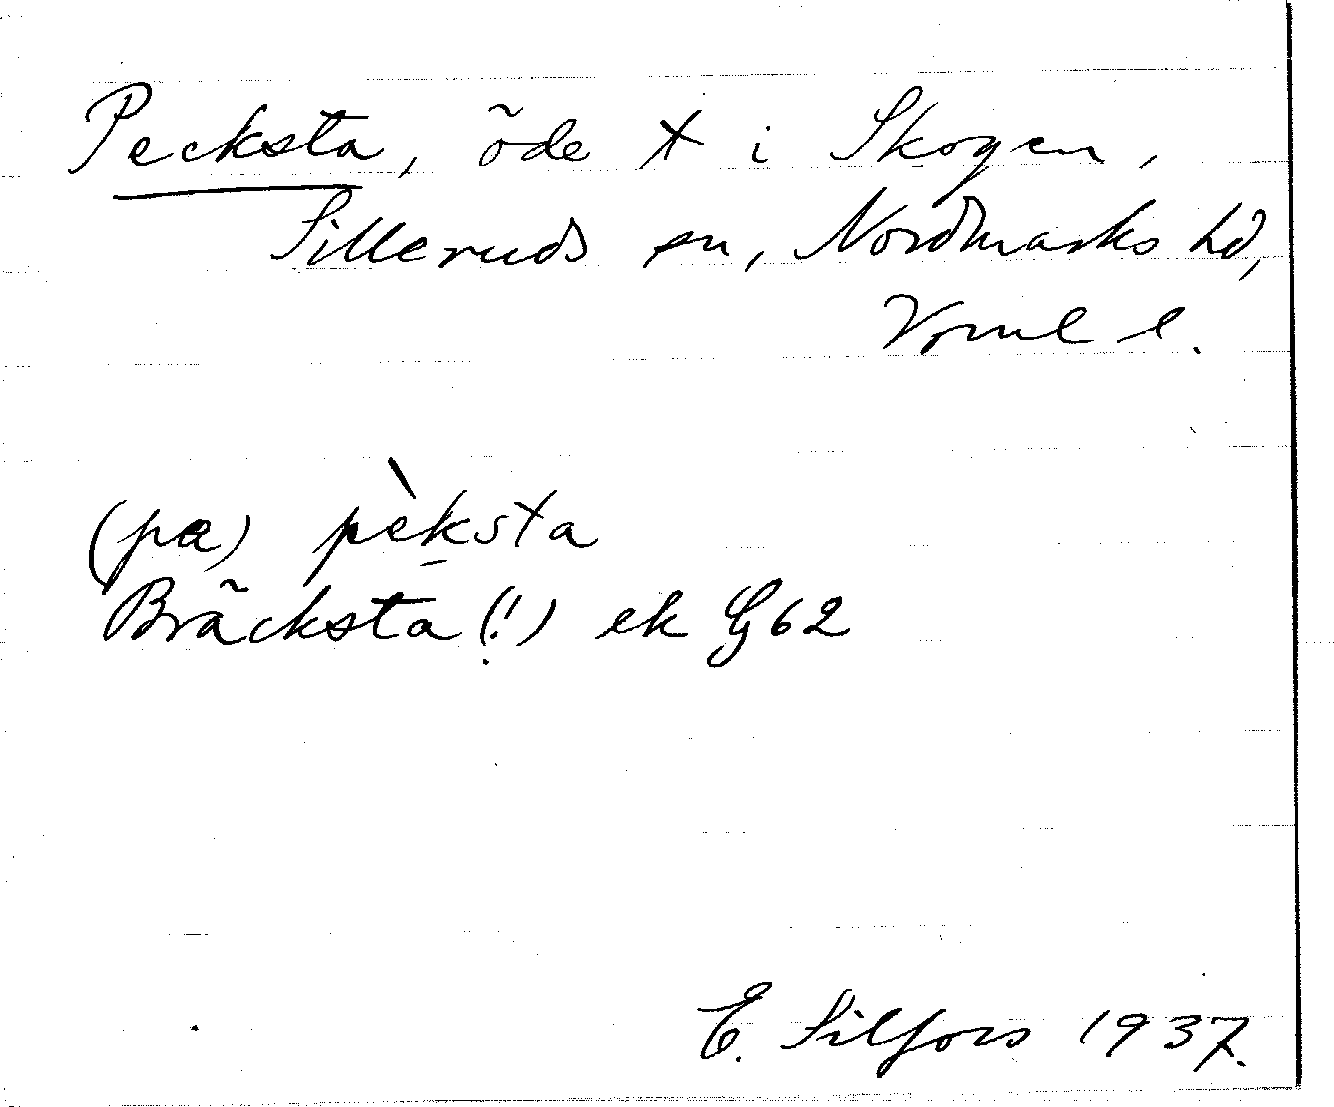 Pecksta, öde t i Skogen,
Silleruds sn, Nordmarks hd,
Vrml l.
(pa) pèksta
Bräcksta (!) ek G 62
E. Silfors 1937.